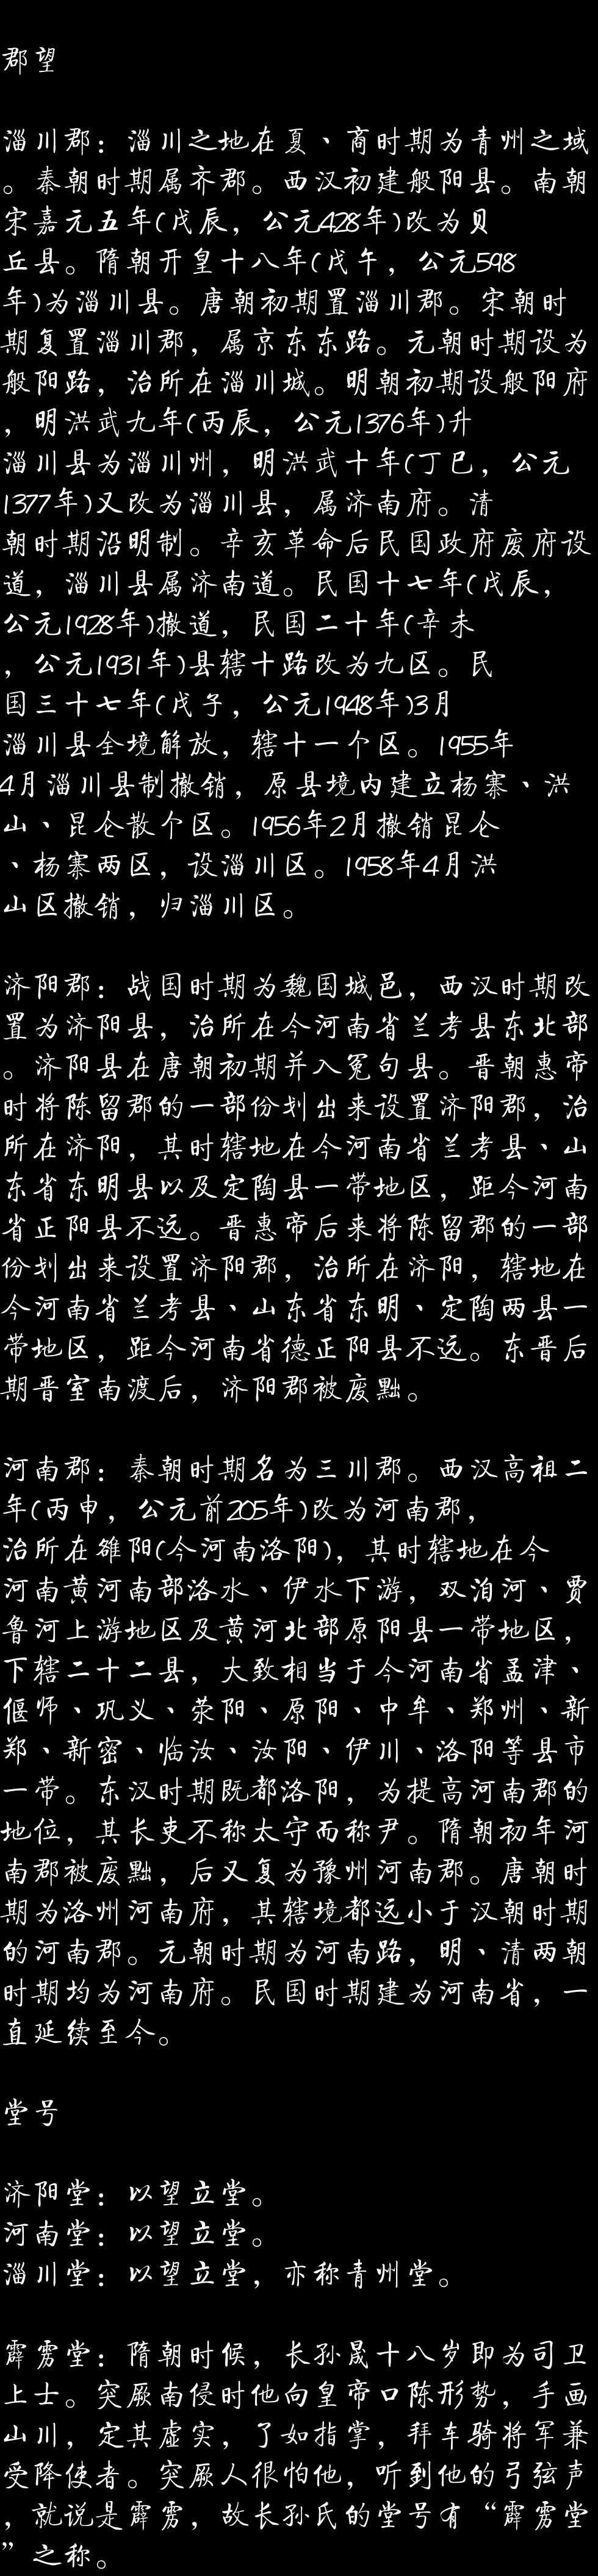 郡望
淄川郡：淄川之地在夏、商时期为青州之域
。秦朝时期属齐郡。西汉初建般阳县。南朝
宋嘉元五年(戊辰，公元428年)改为贝
丘县。隋朝开皇十八年(戊午，公元598
年)为淄川县。唐朝初期置淄川郡。宋朝时
期复置淄川郡，属京东东路。元朝时期设为
般阳路，治所在淄川城。明朝初期设般阳府
，明洪武九年(丙辰，公元1376年)升
淄川县为淄川州，明洪武十年(丁巳，公元
1377年)又改为淄川县，属济南府。清
朝时期沿明制。辛亥革命后民国政府废府设
道，淄川县属济南道。民国十七年(戊辰，
公元1928年)撤道，民国二十年(辛未
，公元1931年)县辖十路改为九区。民
国三十七年(戊子，公元1948年)3月
淄川县全境解放，辖十一个区。1955年
4月淄川县制撤销，原县境内建立杨寨、洪
山、昆仑散个区。1956年2月撤销昆仑
、杨寨两区，设淄川区。1958年4月洪
山区撤销，归淄川区。
济阳郡：战国时期为魏国城邑，西汉时期改
置为济阳县，治所在今河南省兰考县东北部
。济阳县在唐朝初期并入冤句县。晋朝惠帝
时将陈留郡的一部份划出来设置济阳郡，治
所在济阳，其时辖地在今河南省兰考县、山
东省东明县以及定陶县一带地区，距今河南
省正阳县不远。晋惠帝后来将陈留郡的一部
份划出来设置济阳郡，治所在济阳，辖地在
今河南省兰考县、山东省东明、定陶两县一
带地区，距今河南省德正阳县不远。东晋后
期晋室南渡后，济阳郡被废黜。
河南郡：秦朝时期名为三川郡。西汉高祖二
年(丙申，公元前205年)改为河南郡，
治所在雒阳(今河南洛阳)，其时辖地在今
河南黄河南部洛水、伊水下游，双洎河、贾
鲁河上游地区及黄河北部原阳县一带地区，
下辖二十二县，大致相当于今河南省孟津、
偃师、巩义、荥阳、原阳、中牟、郑州、新
郑、新密、临汝、汝阳、伊川、洛阳等县市
一带。东汉时期既都洛阳，为提高河南郡的
地位，其长吏不称太守而称尹。隋朝初年河
南郡被废黜，后又复为豫州河南郡。唐朝时
期为洛州河南府，其辖境都远小于汉朝时期
的河南郡。元朝时期为河南路，明、清两朝
时期均为河南府。民国时期建为河南省，一
直延续至今。
堂号
济阳堂：以望立堂。
河南堂：以望立堂。
淄川堂：以望立堂，亦称青州堂。
霹雳堂：隋朝时候，长孙晟十八岁即为司卫
上士。突厥南侵时他向皇帝口陈形势，手画
山川，定其虚实，了如指掌，拜车骑将军兼
受降使者。突厥人很怕他，听到他的弓弦声
，就说是霹雳，故长孙氏的堂号有“霹雳堂
”之称。